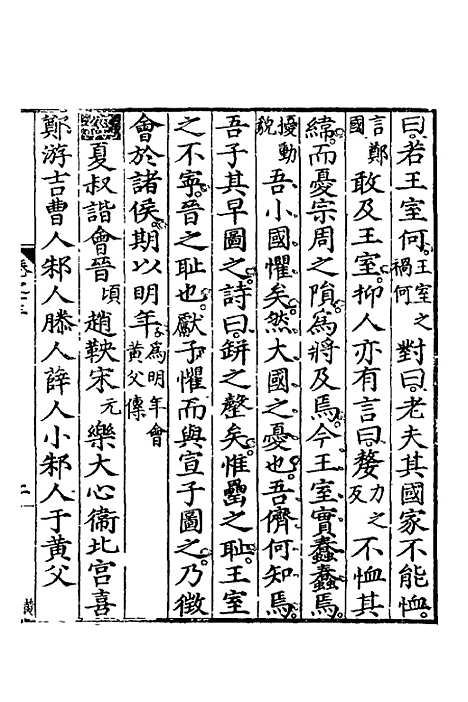 曰若王室何王室之禍何對曰老夫其國家不能恤
言鄭國敢及王室抑人亦有言曰嫠力之反不恤其
緯而憂宗周之隕為將及焉今王室實蠢蠢焉
擾動貌吾小國懼矣然大國之憂也吾儕何知焉
吾子其早圖之詩曰缾之罄矣惟罍之恥王室
之不寧晉之恥也獻子懼而與宣子圖之乃徵
會於諸侯期以明年為明年會黃父傳
經夏叔詣會晉頃趙鞅宋元樂大心衞北宮喜
鄭游吉曹人邾人滕人薛人小邾人于黃父